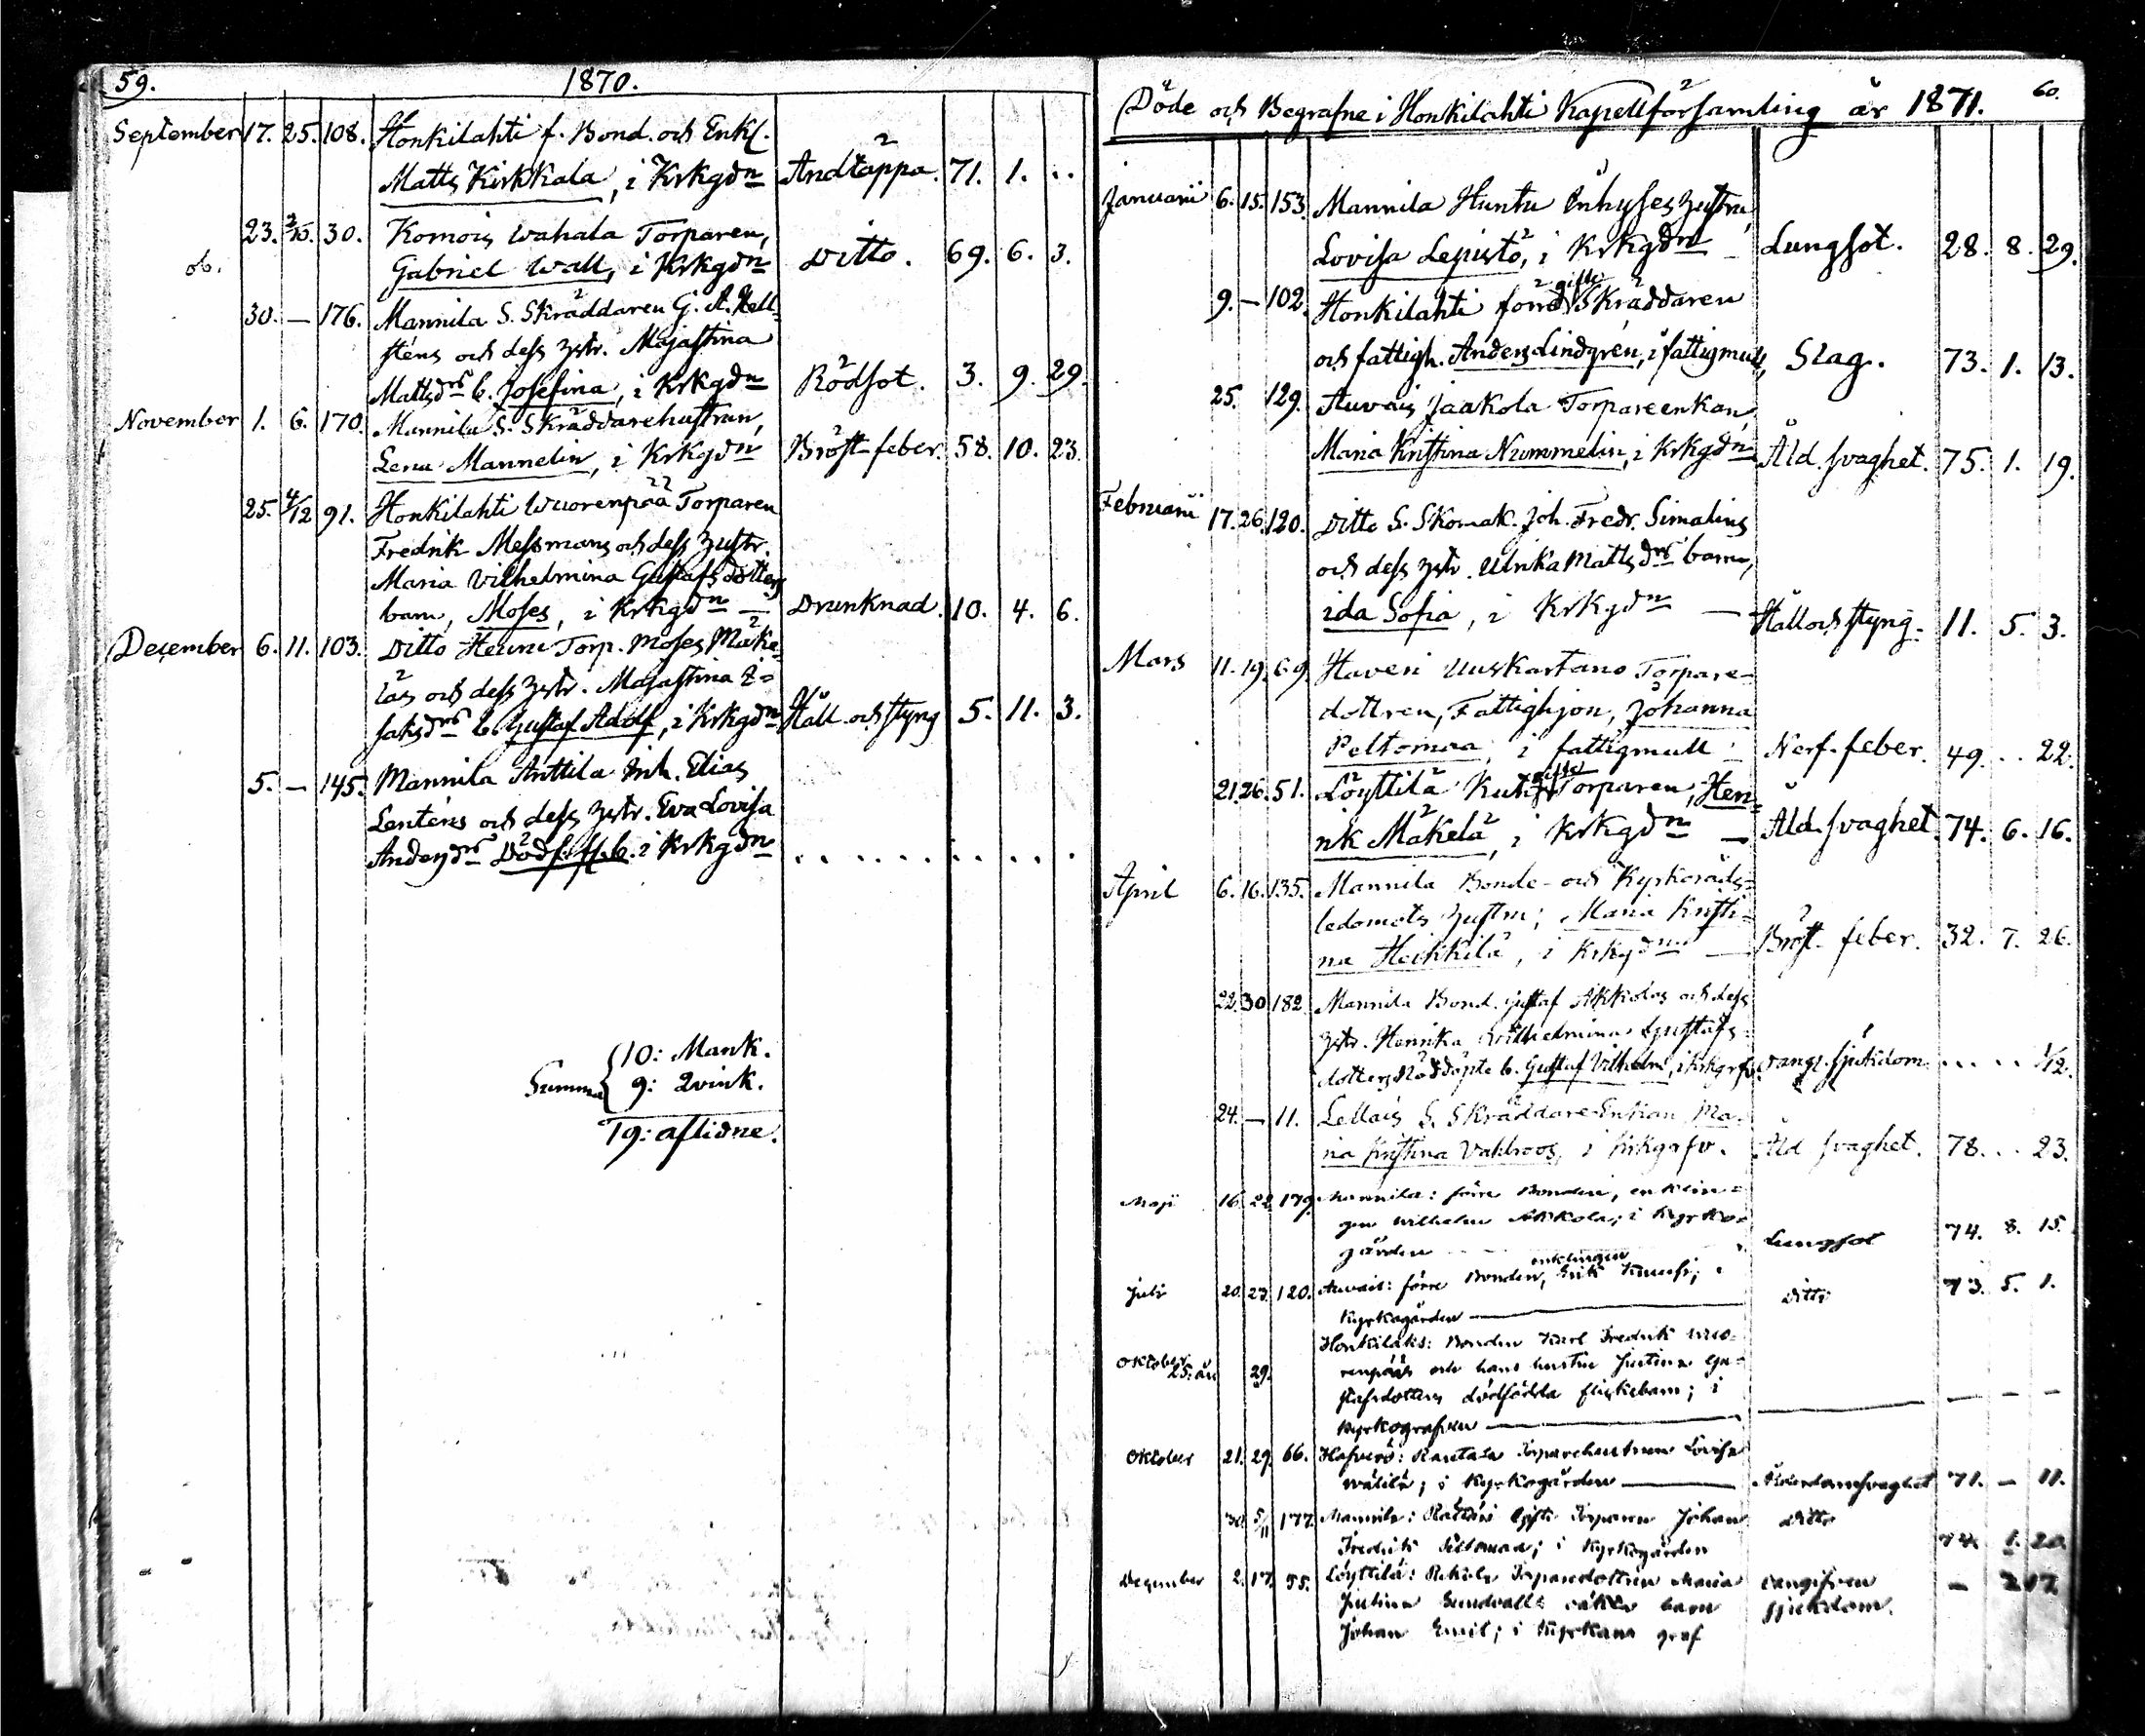 59.
1870.
September 17. 25. 108. Honkilahti f. Bond. och Enkl.
Matts Kirkkala, i Krkgdn Andtäppa. 71. 1. ..
do. 23. 2/10. 30. Komois Wahala Torparen,
Gabriel Wall, i Krkgdn Ditto. 69. 6. 3.
30. — 176. Mannila S. Skräddaren G. A. Hell-
sténs och dess hstr. Majastina
Mattsdrs b. Josefina, i Krkgdn Rödsot. 3. 9. 29.
November 1. 6. 170. Mannila S. Skräddarehustrun,
Lena Mannelin, i Krkgdn Bröst-feber. 58. 10. 23.
25. 4/12 91. Honkilahti Wuorenpää Torparen
Fredrik Messmans och dess hustr.
Maria Vilhelmina Gustafs dotters
barn, Moses, i Krkgdn — Drunknad. 10. 4. 6.
December 6. 11. 103. Ditto Heinu Torp. Moses Mäke-
läs och dess hstr. Majastina I-
saksdrs b. Gustaf Adolf, i Krkgdn Håll och styng 5. 11. 3.
5. — 145. Mannila Anttila Inh. Elias
Lenténs och dess hstr. Eva Lovisa
Andersdrs Dödf. b. i Krkgdn . . . . . . . . .
Summa 10: Mank.
9: Qvink.
19: aflidne.
60.
Döde och Begrafne i Honkilahti Kapellförsamling år 1871.
Januarii 6. 15. 153. Mannila Huntu Inhyses hustru,
Lovisa Lepistö, i Krkgdn — Lungsot. 28. 8. 29.
9. — 102. Honkilahti förra gifte Skräddaren
och fattigh. Anders Lindgrén, i fattigmull, Slag. 73. 1. 13.
25. 129. Auvais Jaakola Torpareenkan,
Maria Kristina Nummelin, i Krkgdn Åld. svaghet. 75. 1. 19.
Februarii 17. 26. 120. Ditto S. Skomak. Joh. Fredr. Simalins
och dess hstr. Ulrika Mattsdrs barn,
ida Sofia, i Krkgdn — Håll och styng. 11. 5. 3.
Mars 11. 19. 69. Haveri Uuskartano Torpare-
dottren, Fattighjon, Johanna
Peltomaa, i fattigmull Nerf-feber. 49. .. 22.
21. 26. 51. Löyttilä gifte Torparen, Hen-
rik Mäkelä, i Krkgdn — Åld. svaghet. 74. 6. 16.
April 6. 16. 135. Mannila Bonde- och Kyrkoråds-
ledamots hustru; Maria Kristi-
na Heikkilä, i Krkgdn — Bröst-feber. 32. 7. 26.
22. 30. 182. Mannila Bond. Gustaf Akkolas och dess
hstr. Henrika Wilhelmina Gustafs-
dotters Nöddöpte b. Gustaf Vilhelm, i Krkgrfv. Oangf. sjukdom. .... 1/12.
24. — 11. Lellais S. Skräddare-Enkan Ma-
ria Kristina Vahlroos, i Krkgrfv. Åld svaghet. 78. .. 23.
Maji 16. 22. 179. Mannila: förre Bonden, enklin-
gen Wilhelm Akkola; i Kyrko-
gården Lungsot 74. 8. 15.
enklingen
Juli 20. 23. 120. Auvais: förre Bonden, Erik i
Kyrkogården — Ditto 73. 5. 1.
Oktober 25. 29. Honkilahti: Bonden Karl Fredrik Wuo-
renpääs och hans hustru Justina Gu-
stafsdotters dödfödda flickebarn; i
Kyrkografven — — — —
Oktober 21. 29. 66. Torparehustrun Lovisa
Wälilä; i Kyrkogården — Ålderdomssvaghet 71. — 11.
30. 5/11 177. Mannila: Gifte Torparen Johan
Fredrik Peltomaa; i Kyrkogården Ditto 74. 1. 20.
December 2. 17. 55. Löyttilä: Torparedottren Maria
Justina Sundvalls oäkta barn
Johan Emil; i Kyrkans graf Oangifven sjukdom. — 2 12